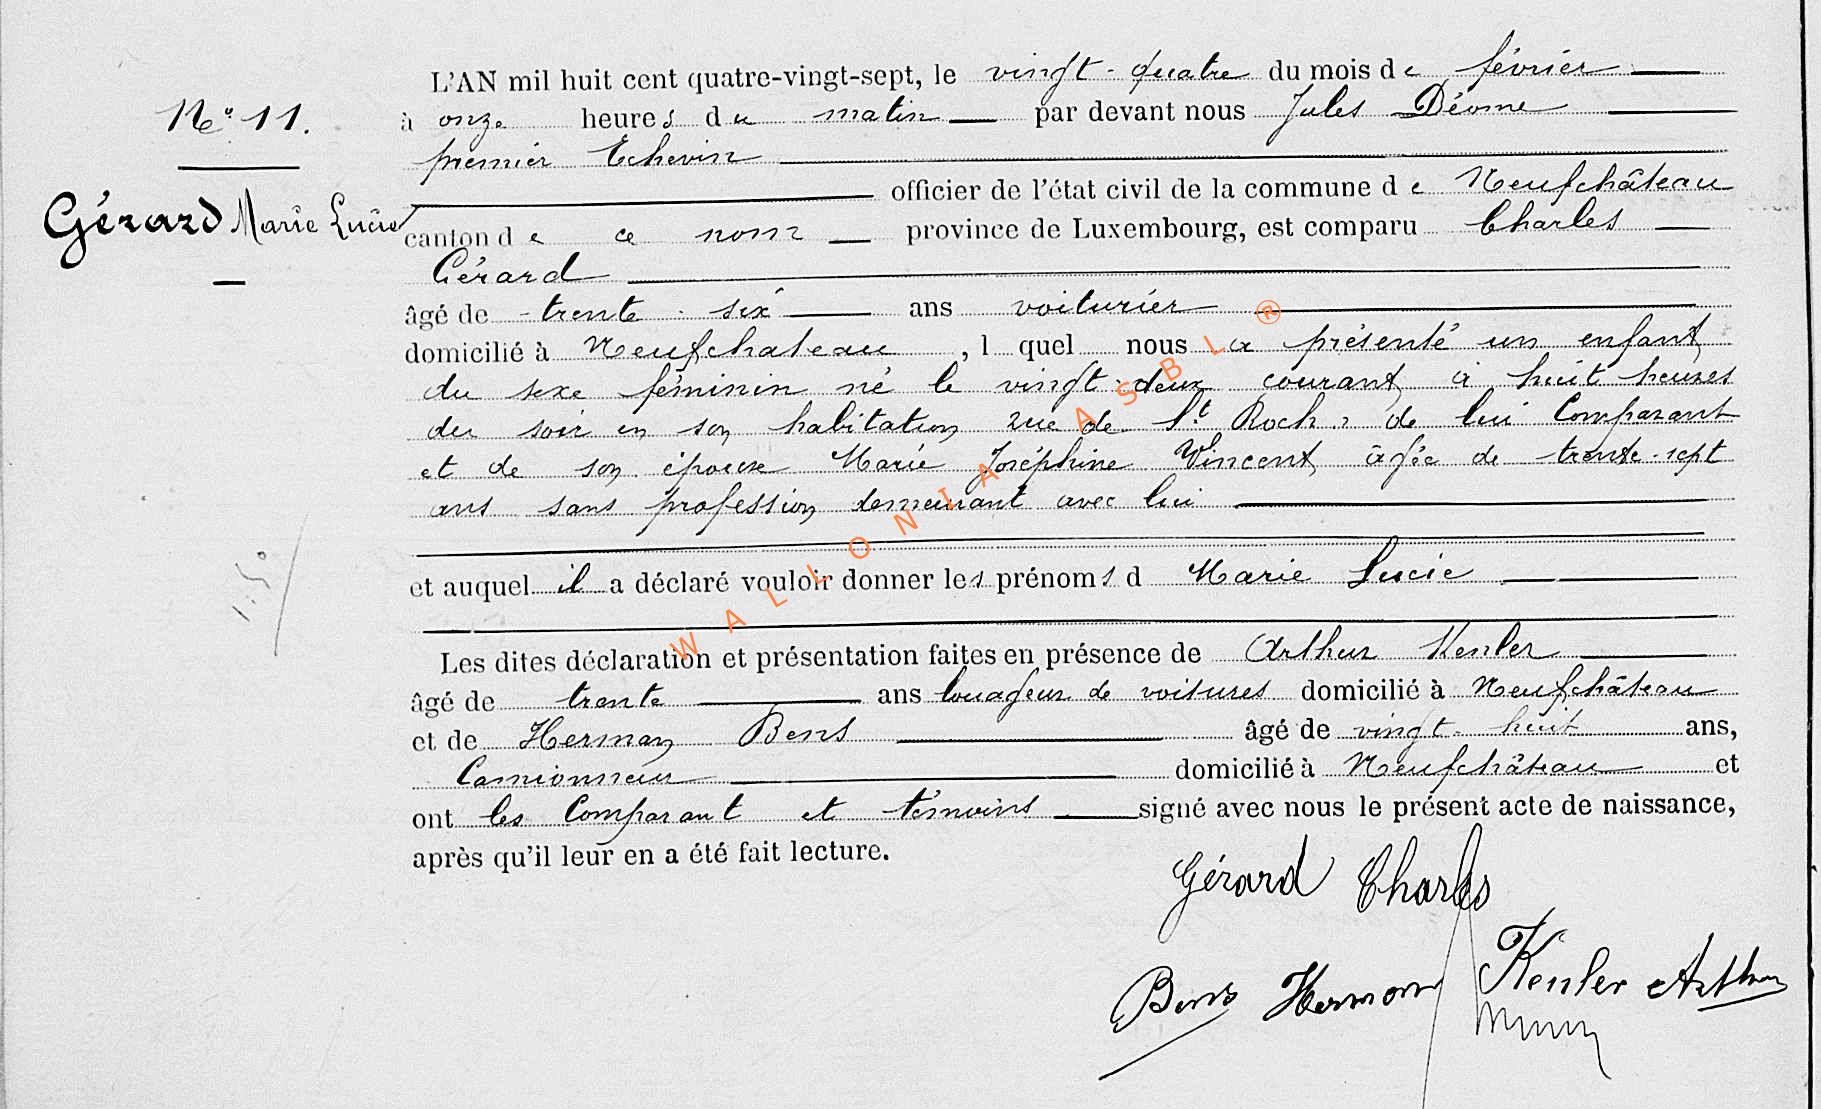 L'AN mil huit cent quatre-vingt-sept, le vingt-quatre du mois de février
N° 11.
à onze heures du matin par devant nous Jules Déome
premier Echevin
officier de l'état civil de la commune de Neufchâteau
Gérard Marie Lucie
canton de ce nom province de Luxembourg, est comparu Charles
Gérard
âgé de trente-six ans voiturier
domicilié à Neufchateau, l quel nous a présenté un enfant
du sexe féminin né le vingt-deux courant à huit heures
du soir en son habitation rue de St Roch, de lui Comparant
et de son épouse Marie Joséphine Vincent âgée de trente-sept
ans sans profession demeurant avec lui
1.50
et auquel il a déclaré vouloir donner les prénoms d Marie Lucie
Les dites déclaration et présentation faites en présence de Arthur Kenler
âgé de trente ans louageur de voitures domicilié à Neufchâteau
et de Herman Bens âgé de vingt-huit ans,
Camionneur domicilié à Neufchâteau et
ont les Comparant et témoins signé avec nous le présent acte de naissance,
après qu'il leur en a été fait lecture.
Gérard Charles
Bens Herman Kenler Arthur
WALLONIA ASBL ®